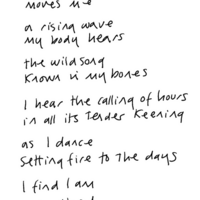 moves me
a rising wave
my body hears
the wild song
known in my bones
I hear the calling of hours
in all its Tender Keening
as I dance
setting fire to The days
I find I am